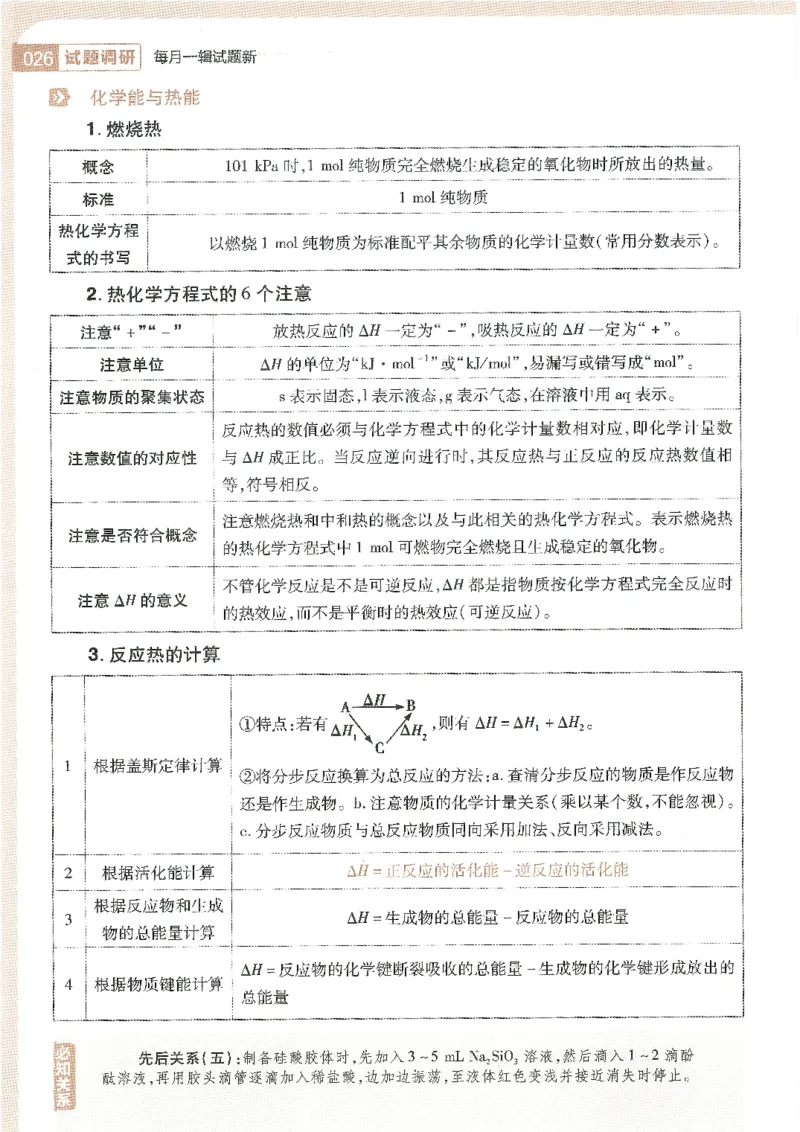 026 试题调研 每月一辑试题新
化学能与热能
1. 燃烧热
概念 101 kPa 时,1 mol 纯物质完全燃烧生成稳定的氧化物时所放出的热量。
标准 1 mol 纯物质
热化学方程
式的书写
以燃烧 1 mol 纯物质为标准配平其余物质的化学计量数(常用分数表示)。
2. 热化学方程式的 6 个注意
注意“+”“-” 放热反应的 ΔH 一定为“-”,吸热反应的 ΔH 一定为“+”。
注意单位 ΔH 的单位为“kJ·mol⁻¹”或“kJ/mol”,易漏写或错写成“mol”。
注意物质的聚集状态 s 表示固态,l 表示液态,g 表示气态,在溶液中用 aq 表示。
注意数值的对应性
反应热的数值必须与化学方程式中的化学计量数相对应,即化学计量数
与 ΔH 成正比。当反应逆向进行时,其反应热与正反应的反应热数值相
等,符号相反。
注意是否符合概念
注意燃烧热和中和热的概念以及与此相关的热化学方程式。表示燃烧热
的热化学方程式中 1 mol 可燃物完全燃烧且生成稳定的氧化物。
注意 ΔH 的意义
不管化学反应是不是可逆反应,ΔH 都是指物质按化学方程式完全反应时
的热效应,而不是平衡时的热效应(可逆反应)。
3. 反应热的计算
1 根据盖斯定律计算
①特点:若有 A ΔH B ΔH₁ ΔH₂ C ,则有 ΔH=ΔH₁+ΔH₂。
②将分步反应换算为总反应的方法:a. 查清分步反应的物质是作反应物
还是作生成物。b. 注意物质的化学计量关系(乘以某个数,不能忽视)。
c. 分步反应物质与总反应物质同向采用加法、反向采用减法。
2 根据活化能计算 ΔH=正反应的活化能-逆反应的活化能
3 根据反应物和生成
物的总能量计算
ΔH=生成物的总能量-反应物的总能量
4 根据物质键能计算
ΔH=反应物的化学键断裂吸收的总能量-生成物的化学键形成放出的
总能量
必知关系
先后关系(五):制备硅酸胶体时,先加入 3~5 mL Na₂SiO₃ 溶液,然后滴入 1~2 滴酚
酞溶液,再用胶头滴管逐滴加入稀盐酸,边加边振荡,至液体红色变浅并接近消失时停止。